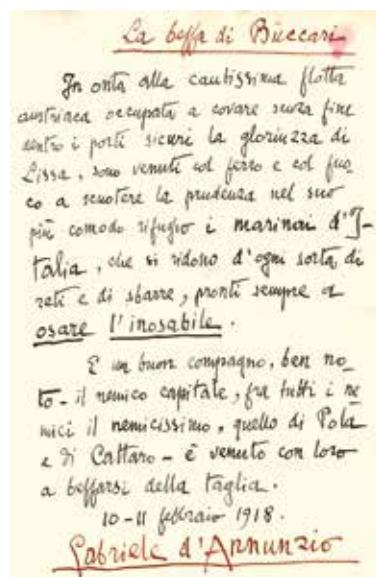 La beffa di Buccari
In onta alla cautissima flotta
austriaca occupata a covare senza fine
dentro i porti sicuri la gloriuzza di
Lissa, sono venuti col ferro e col fuo-
co a scuotere la prudenza nel suo
più comodo rifugio i marinai d'I-
talia, che si ridono d'ogni sorta di
reti e di sbarre, pronti sempre a
osare l'inosabile.
E un buon compagno, ben no-
to - il nemico capitale, fra tutti i ne
mici il nemicissimo, quello di Pola
e di Cattaro - è venuto con loro
a beffarsi della taglia.
10-11 febbraio 1918.
Gabriele d'Annunzio